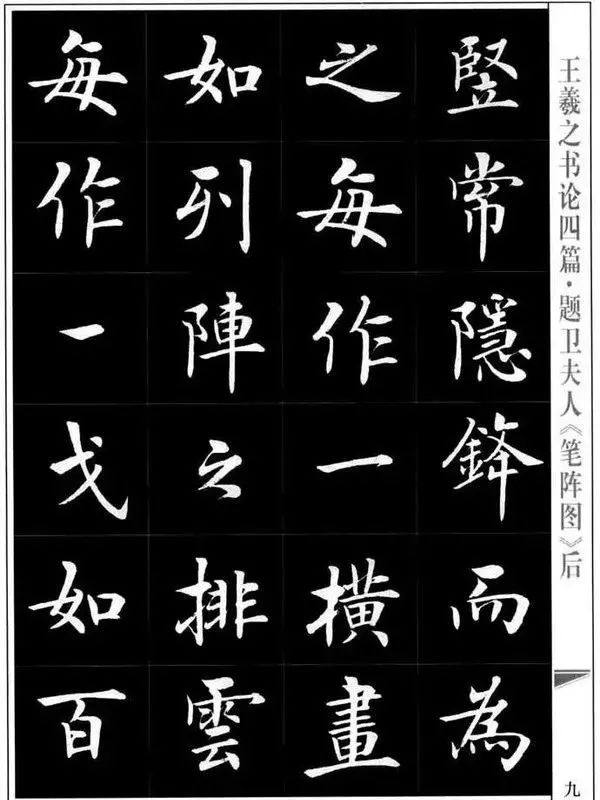 豎常隱鋒而為
之每作一橫畫
如列陣之排雲
每作一戈如百
王羲之书论四篇·题卫夫人《笔阵图》后
九